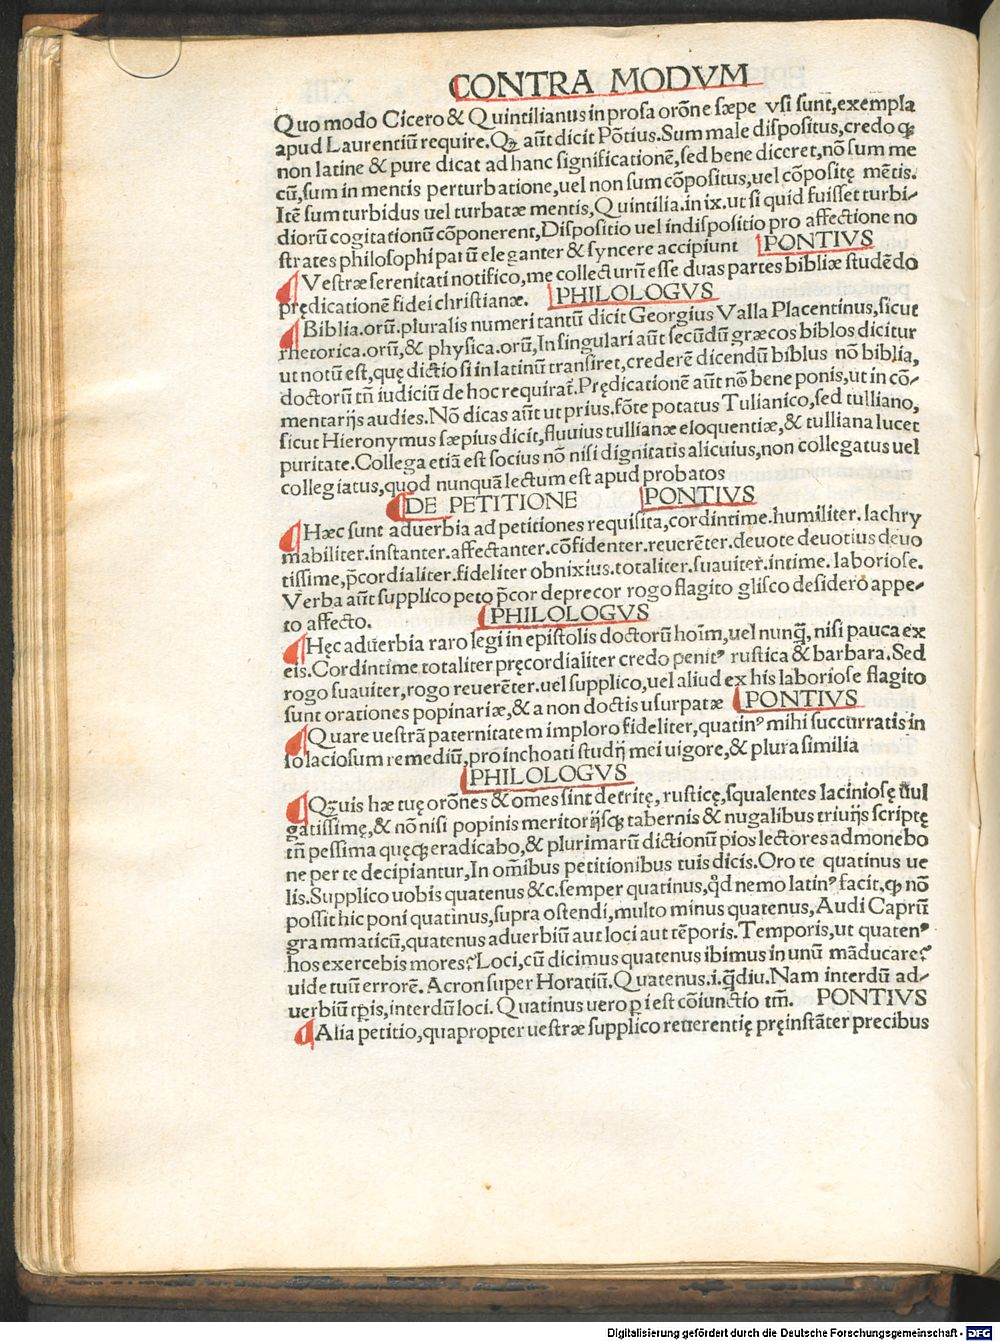 CONTRA MODVM
Quo modo Cicero & Quintilianus in prosa orõne sæpe vsi sunt, exempla
apud Laurentiũ require. Qꝫ aũt dicit Põtius. Sum male dispositus, credo ꝙ
non latine & pure dicat ad hanc significationẽ, sed bene diceret, nõ sum me
cũ, sum in mentis perturbatione, uel non sum cõpositus, uel cõpositę mẽtis.
Itẽ sum turbidus uel turbatæ mentis, Quintilia. in ix. ut si quid fuisset turbi-
diorũ cogitationũ cõponerent, Dispositio uel indispositio pro affectione no
strates philosophi paꝝ eleganter & syncere accipiunt PONTIVS
Vestræ serenitati notifico, me collecturũ esse duas partes bibliæ studẽdo
prędicationẽ fidei christianæ. PHILOLOGVS
Biblia. orũ. pluralis numeri tantũ dicit Georgius Valla Placentinus, sicut
rhetorica. orũ, & physica. orũ, In singulari aũt secũdũ græcos biblos dicitur
ut notũ est, quę dictio si in latinũ transiret, crederẽ dicendũ biblus nõ biblia,
doctorũ tñ iudiciũ de hoc requirat̃. Prędicationẽ aũt nõ bene ponis, ut in cõ-
mentarijs audies. Nõ dicas aũt ut prius. fõte potatus Tulianico, sed tulliano,
sicut Hieronymus sæpius dicit, fluuius tullianæ eloquentiæ, & tulliana lucet
puritate. Collega etiã est socius nõ nisi dignitatis alicuius, non collegatus uel
collegiatus, quod nunquã lectum est apud probatos
DE PETITIONE PONTIVS
Hæc sunt aduerbia ad petitiones requisita, cordintime. humiliter. lachry
mabiliter. instanter. affectanter. cõfidenter. reuerẽter. deuote deuotius deuo
tissime, p̃cordialiter. fideliter obnixius. totaliter. suauiter̃. intime. laboriose.
Verba aũt supplico peto p̃cor deprecor rogo flagito glisco desidero appe-
to affecto. PHILOLOGVS
Hęc aduerbia raro legi in epistolis doctorũ hoĩm, uel nunq̃, nisi pauca ex
eis. Cordintime totaliter pręcordialiter credo penitꝰ rustica & barbara. Sed
rogo suauiter, rogo reuerẽter. uel supplico, uel aliud ex his laboriose flagito
sunt orationes popinariæ, & a non doctis usurpatæ PONTIVS
Quare uestrã paternitatem imploro fideliter, quatinꝰ mihi succurratis in
solaciosum remediũ, pro inchoati studij mei uigore, & plura similia
PHILOLOGVS
Qꝫuis hæ tuę orõnes & omes sint detritę, rusticę, squalentes laciniosę uul
gatissimę, & nõ nisi popinis meritorijsꝙ tabernis & nugalibus triuijs scriptę
tñ pessima quęꝙ eradicabo, & plurimarũ dictionũ pios lectores admonebo
ne per te decipiantur, In om̃ibus petitionibus tuis dicis. Oro te quatinus ue
lis. Supplico uobis quatenus &c. semper quatinus, q̃d nemo latinꝰ facit, ꝙ nõ
possit hic poni quatinus, supra ostendi, multo minus quatenus, Audi Caprũ
grammaticũ, quatenus aduerbiũ aut loci aut tẽporis. Temporis, ut quatenꝰ
hos exercebis mores? Loci, cũ dicimus quatenus ibimus in unũ mãducare?
uide tuũ errorẽ. Acron super Horatiũ. Quatenus. i. q̃diu. Nam interdũ ad-
uerbiũ tꝑis, interdũ loci. Quatinus uero ꝑ i est cõiunctio tm̃. PONTIVS
Alia petitio, quapropter uestræ supplico reuerentię pręinstãter precibus
Digitalisierung gefördert durch die Deutsche Forschungsgemeinschaft - DFG